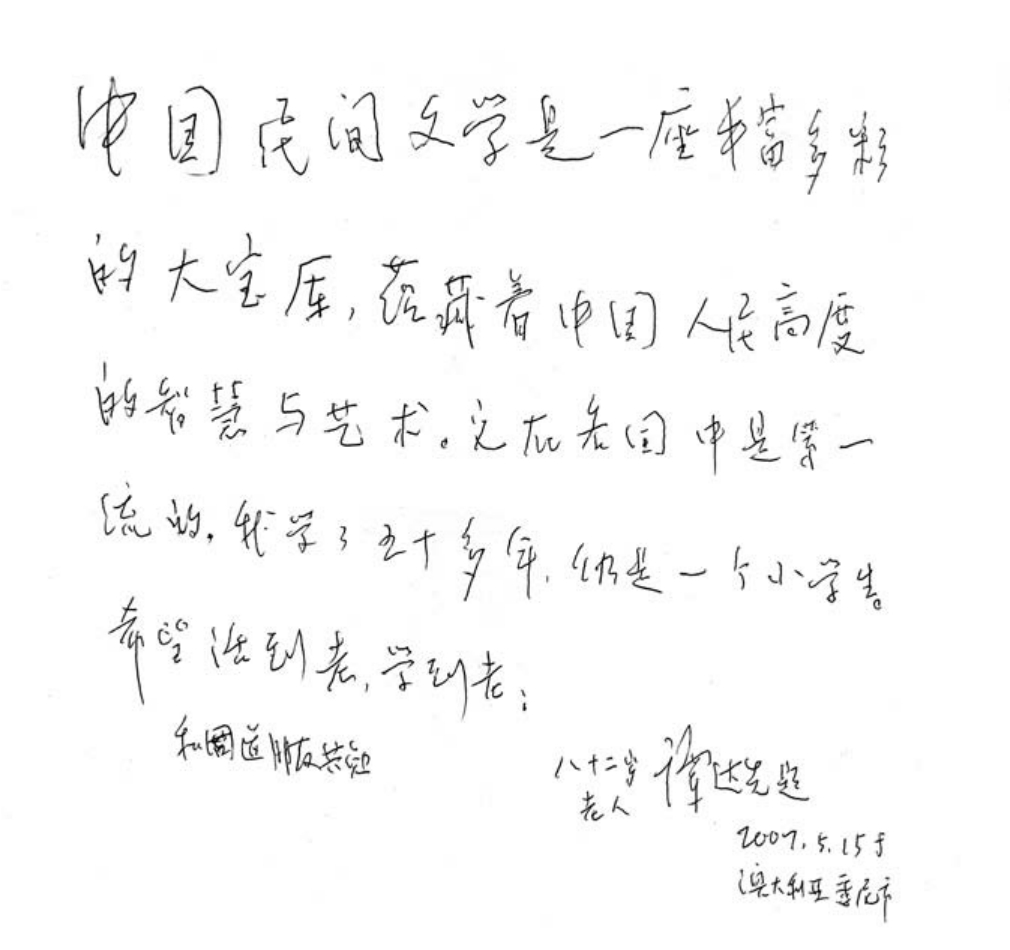 中国民间文学是一座丰富多彩
的大宝库,蕴藏着中国人民高度
的智慧与艺术。它在各国中是第一
流的。我学了五十多年,仍是一个小学生。
希望活到老,学到老;
和同道朋友共勉
八十二岁
老人 谭达先题
2007.5.15于
澳大利亚悉尼市